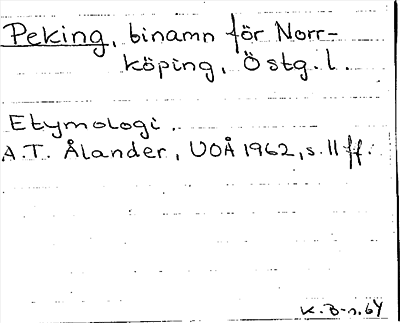 Peking, binamn för Norr-
köping, Östg.l.
Etymologi.
A.T. Ålander, UOÅ 1962, s. 11 ff.
K.B-n. 64